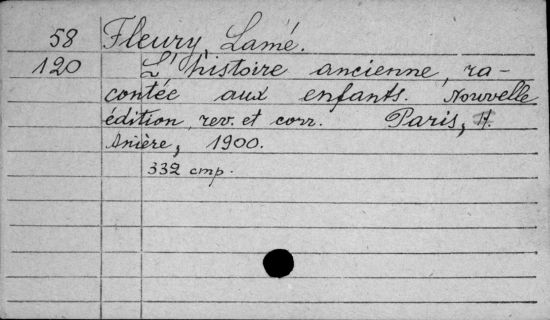 58 Fleury, Lamé.
120 L'histoire ancienne, ra-
contée aux enfants. Nouvelle
édition, rev. et corr. Paris, H.
Anière, 1900.
332 стр.